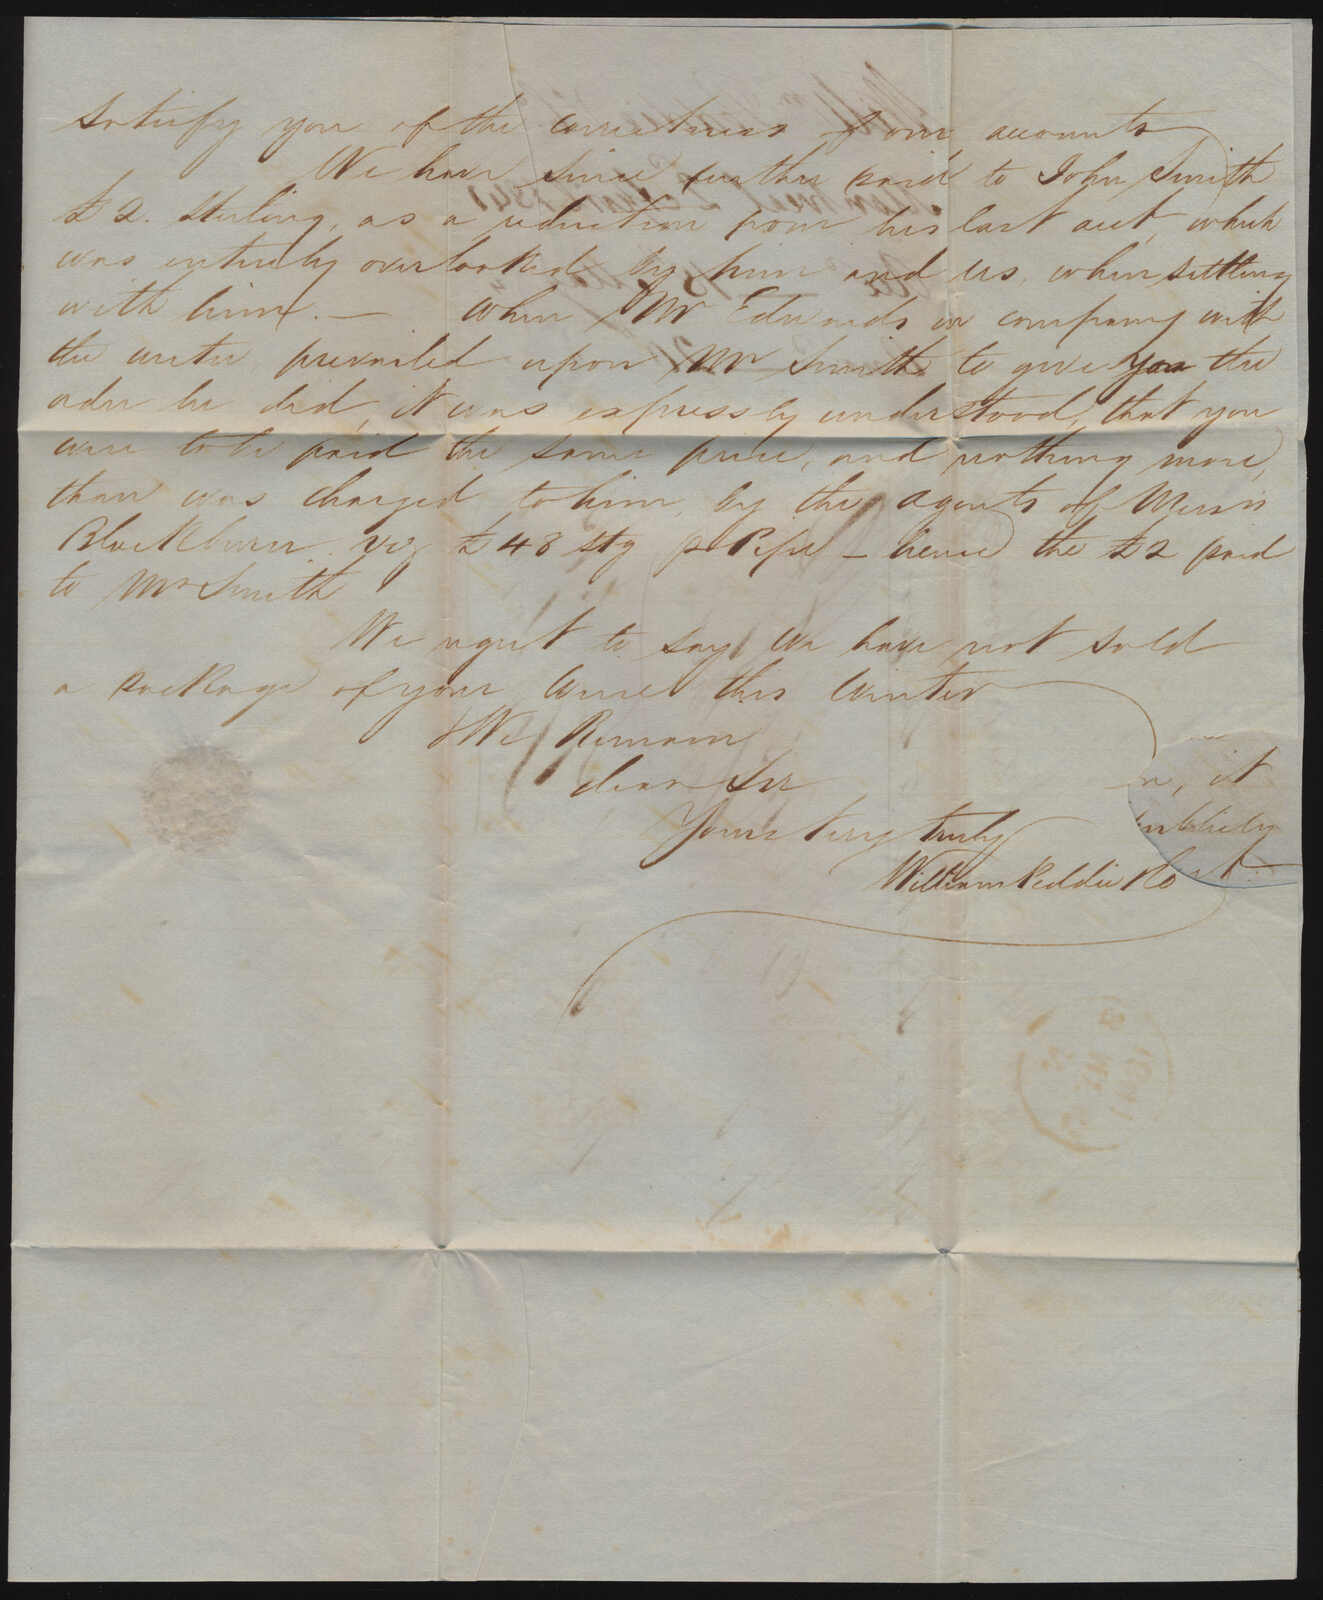 satisfy you of the correctness of our accounts
We have since further paid to John Smith
£2. Sterling, as a reduction from his last acct, which
was entirely overlooked by him and us, when settling
with him. — When Mr Edwards in company with
the writer prevailed upon Mr Smith to give you the
order he did, it was expressly understood, that you
were to be paid the same price, and nothing more,
than was charged to him, by the agents of Messrs
Blackburn viz £48 stg p Pipe — hence the £2 paid
to Mr Smith
We regret to say we have not sold
a package of your Wine this Winter
We Remain
dear Sir
Yours very truly
William Peddie & Co
, it